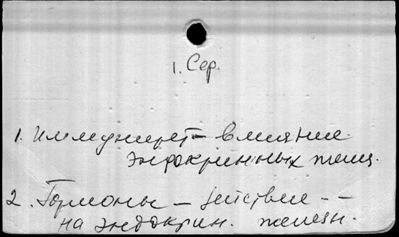 1. Сер.
1. Иммунитет – влияние
эндокринных желез.
2. Гормоны – действие --
на эндокрин. железы.